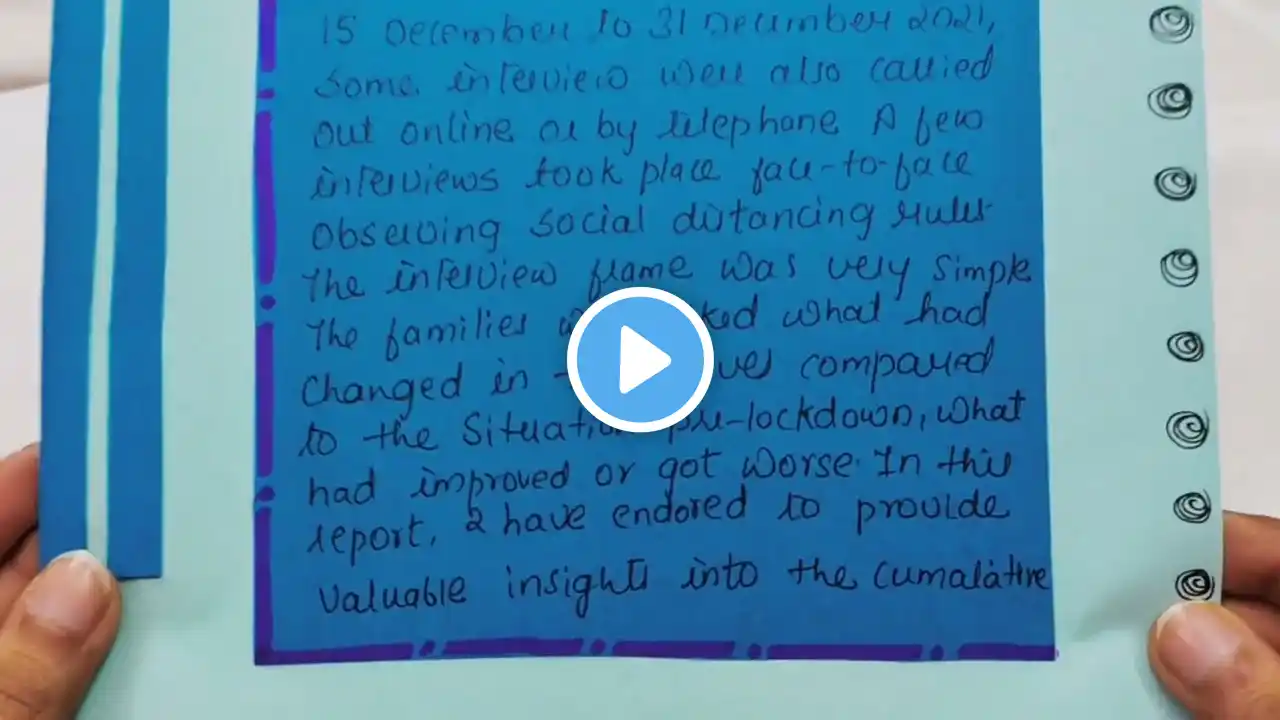 15 December to 31 December 2021,
Some interview were also carried
out online or by telephone. A few
interviews took place face-to-face
observing social distancing rules
The interview frame was very simple
The families what had
Changed in compared
to the Situation pre-lockdown, what
had improved or got worse. In this
report, have endored to provide
valuable insights into the cumalative